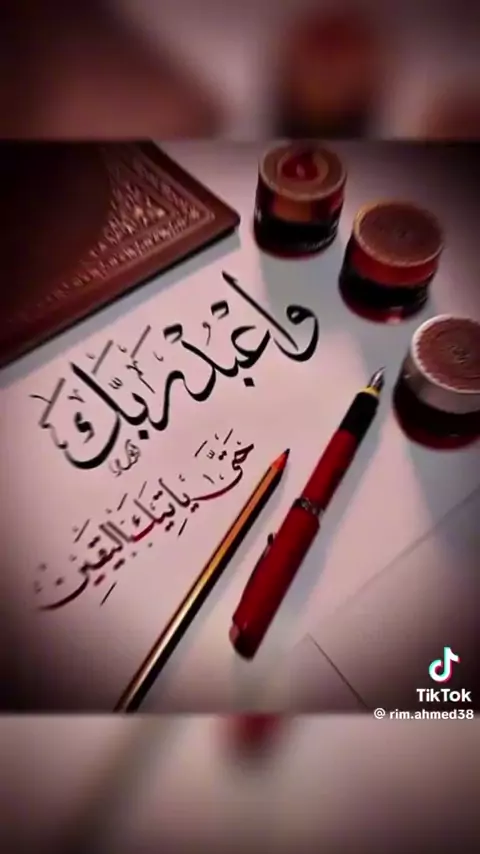 واعْبُدْ رَبَّكَ
حَتَّىٰ يَأْتِيَكَ الْيَقِينُ
TikTok
@ rim.ahmed38